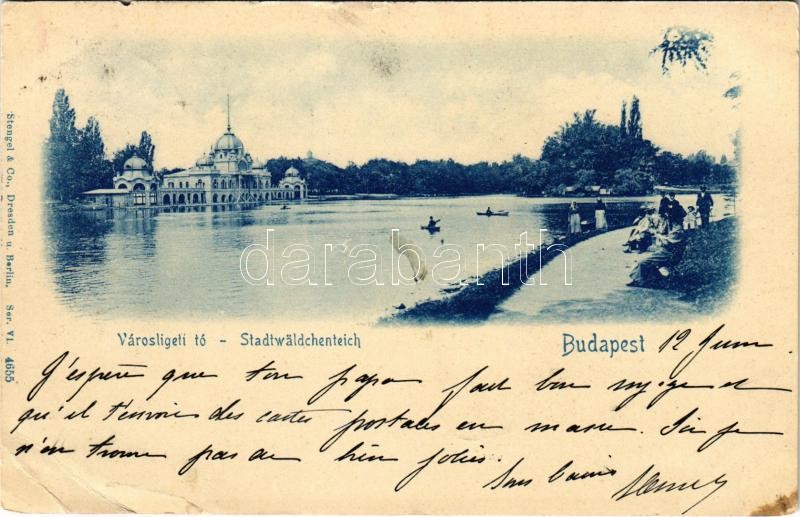 Stengel & Co., Dresden u. Berlin, Ser. VI. 4655
darabanth
Városligeti tó - Stadtwäldchenteich
Budapest 12 Juin
J'espère que ton papa fait bon voyage et
qu'il t'envoie des cartes postales en masse. Ici je
n'en trouve pas de bien jolies.